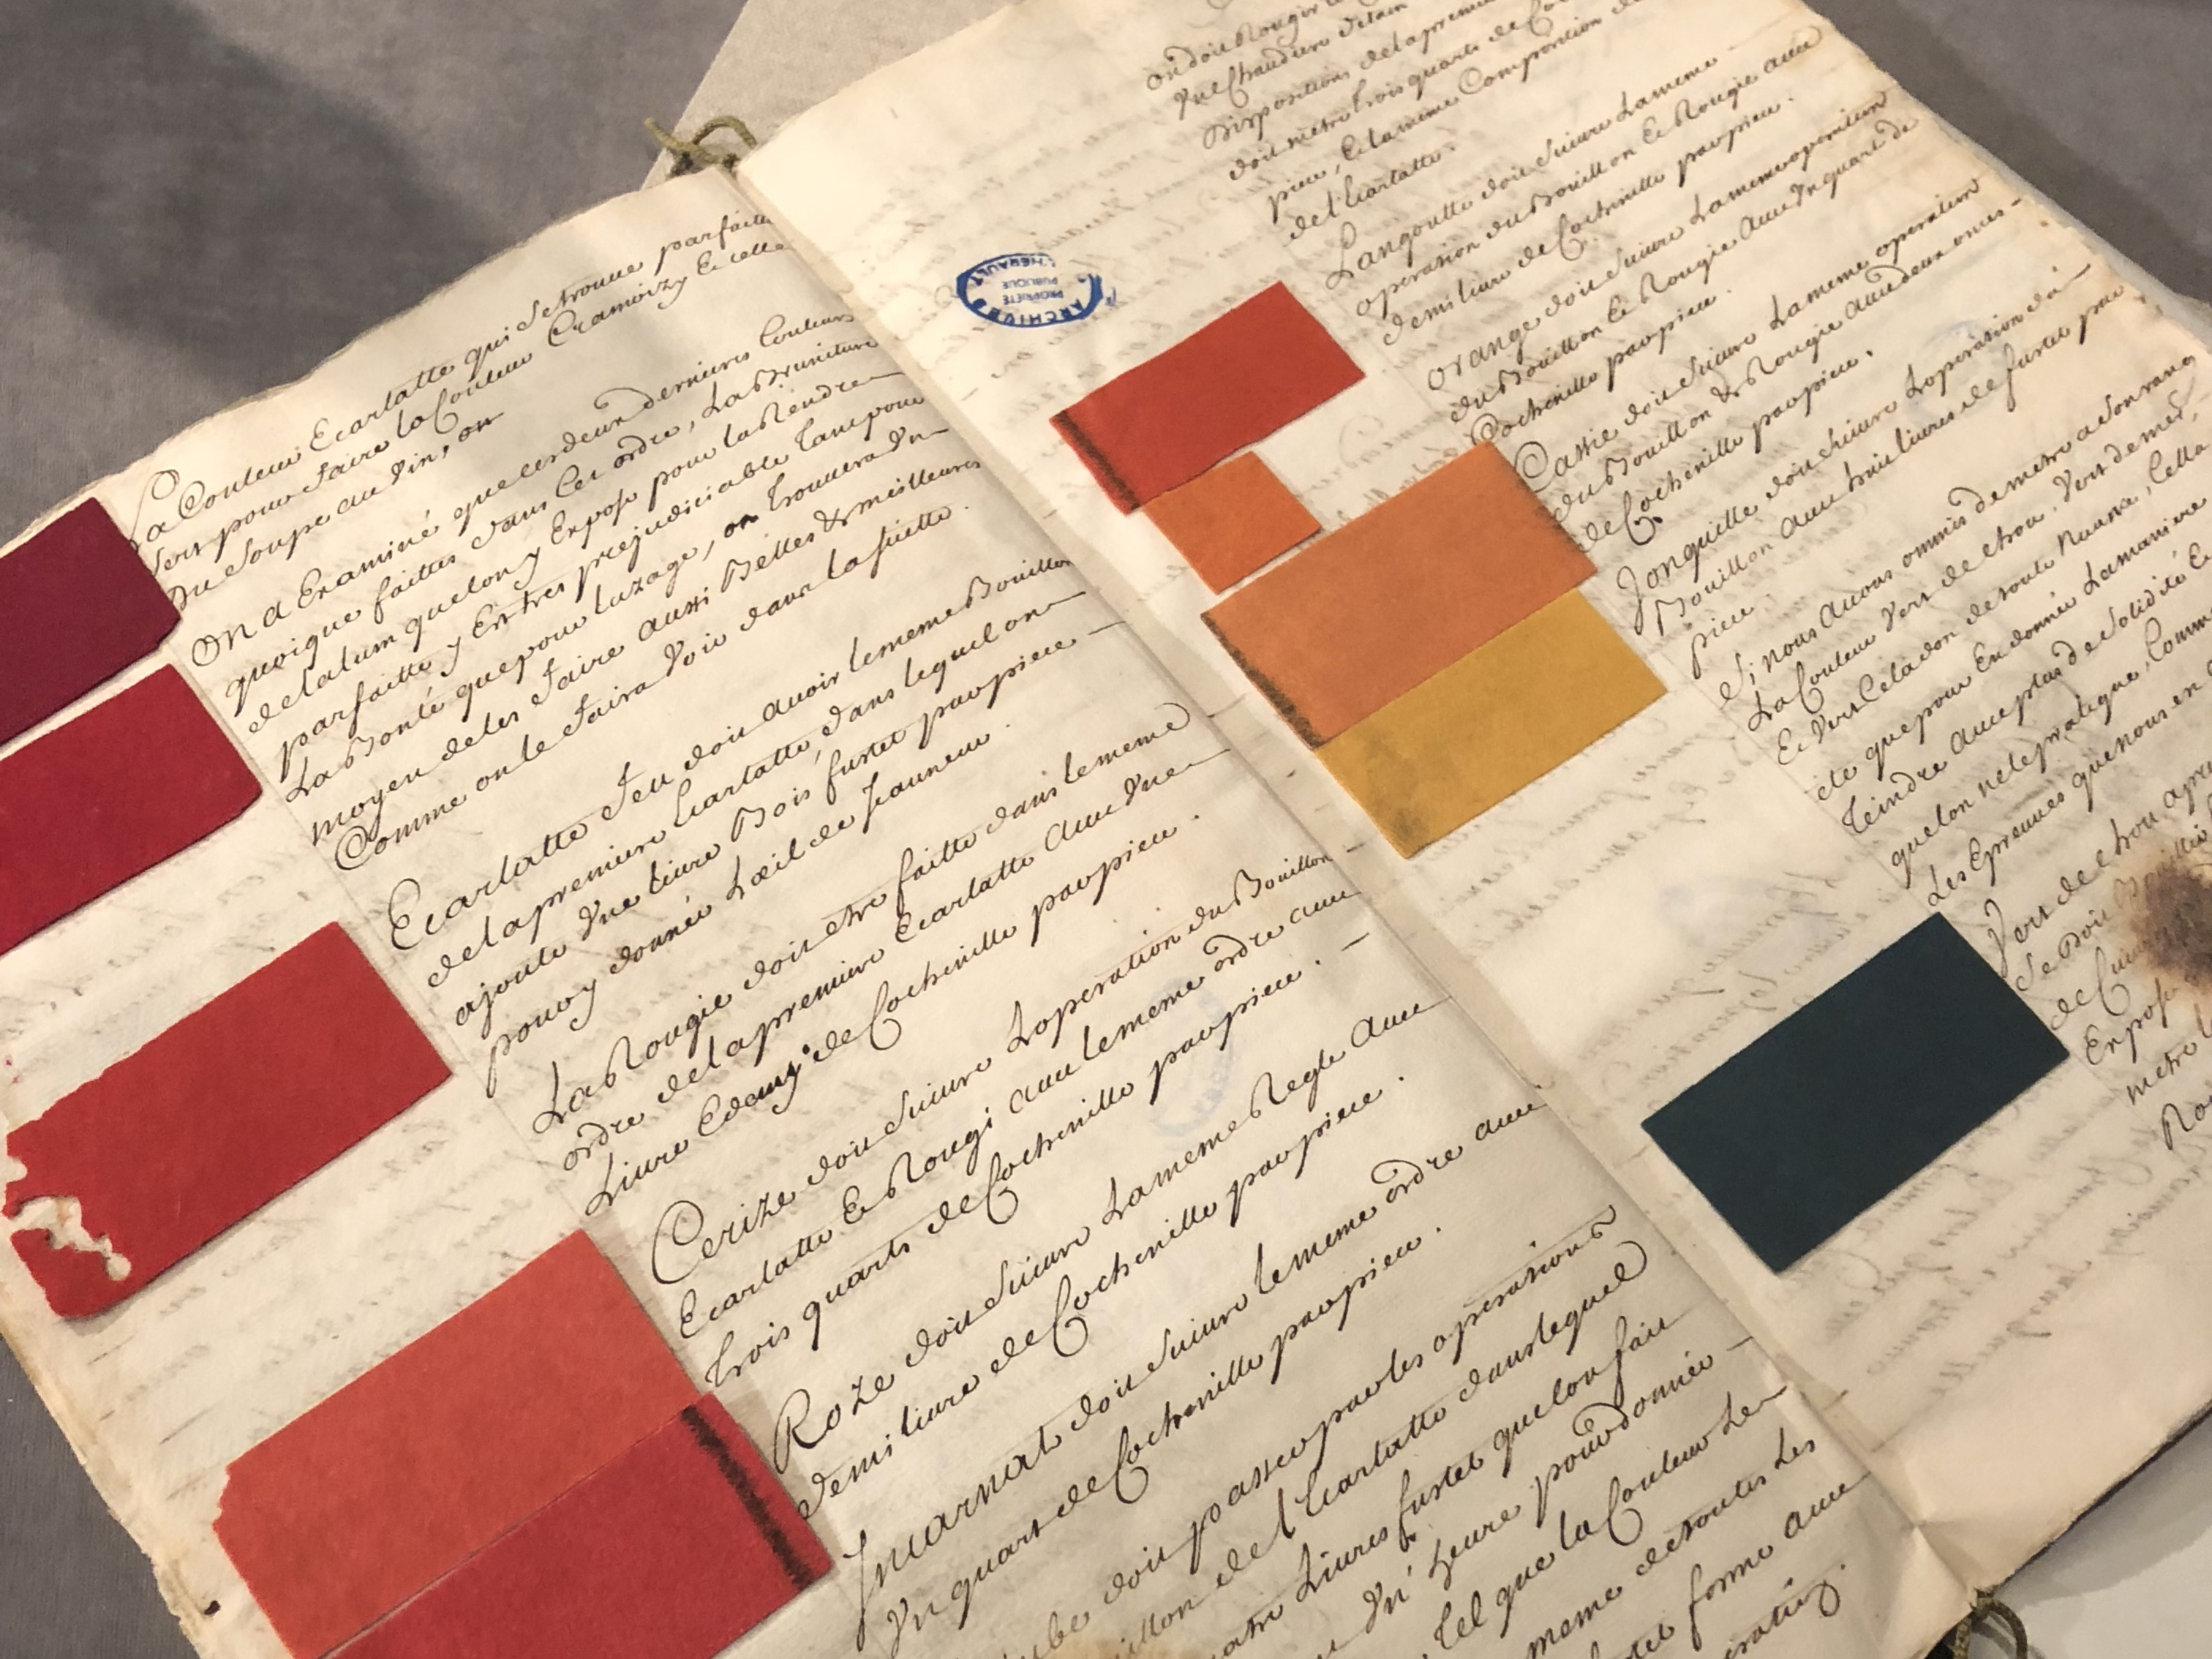 La Couleur Ecarlatte qui se trouve parfaite
sert pour faire la Couleur Cramoizy Et celle
du Soupe au vin, on
On a Examiné que ces deux dernieres Couleurs
quoique faittes dans Cet ordre, La Bruniture
de Lalum que lon y Expose pour la Rendre
parfaitte y Est tres prejudiciable Tant pour
La Bonté que pour Luzage, on trouvera Un
moyen de les faire aussi Belles & meilleures
Comme on le faira Voir dans la suitte.
Ecarlatte feu doit avoir le meme Bouillon
de la premiere Ecarlatte, dans lequel on
ajoute Une livre Bois fustet par piece
pour y donner Lœil de Jauneur.
La Rougie doit etre faitte dans le meme
ordre de la premiere Ecarlatte avec Une
Livre Edemy de Cochenille par piece.
Cerize doit Suivre Loperation du Bouillon
Ecarlatte Et Rougi avec le meme ordre avec
trois quarts de Cochenille par piece.
Roze doit Suivre La meme Regle Avec
demi livre de Cochenille par piece.
Incarnat doit Suivre le meme ordre avec
Un quart de Cochenille par piece.
doit passer par les operations
de l'Ecarlatte dans lequel
Livres fustet que lon fait
Un heure pour donner
Tel que la Couleur Le
meme de toutes Les
forme avec
on doit Rougir
Une Chaudiere d'etain
Dispositions de la premiere
doit metre trois quarts de
piece, Et la meme Composition
de l'Ecarlatte.
Langoutte doit Suivre La meme
operation du Bouillon Et Rougie avec
demi livre de Cochenille par piece.
Orange doit Suivre La meme operation
du Bouillon Et Rougie avec Un quart de
Cochenille par piece.
Cassie doit Suivre La meme operation
du Bouillon & Rougie avec deux onces
de Cochenille par piece.
Jonquille doit Suivre Loperation du
Bouillon avec huit livres de fustet par
piece.
Si nous avons ommis de metre a Son rang
La Couleur Vert de chou, Vert de mer,
Et Vert Celadon de toute Nuance, Cella
ete que pour En donner La maniere
Teindre avec plus de Solidité
que lon ne le pratique, Comme
Les Epreuves que nous en
Vert de chou
Se Doit Bouillir
de
Expose
metre
ARCHIVES
L'HERAULT
PROPRIETE
PUBLIQUE